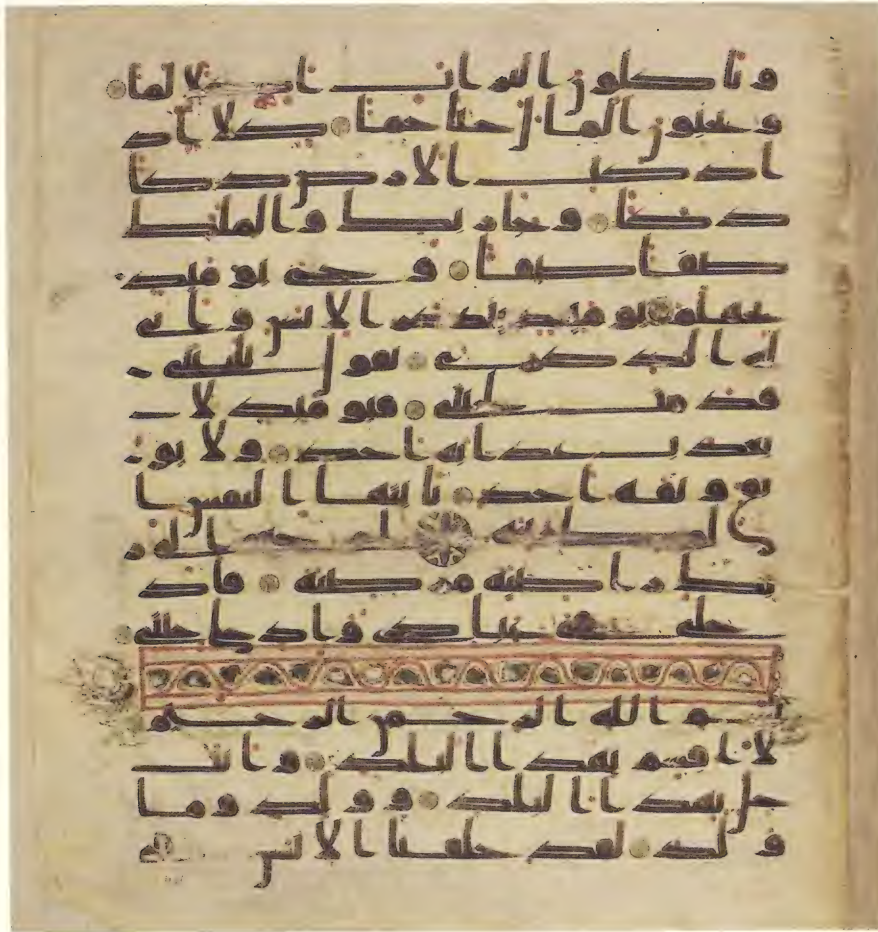 وتاكلون التراث اكلا لما
وتحبون المال حبا جما كلا اذ
ا دكت الارض دكا
دكا وجا ربك والملك
صفا صفا وجىء يومئذ
بجهنم يومئذ يتذكر الانسن وانى
له الذكرى يقول يليتنى
قدمت لحياتى فيومئذ لا
يعذب عذابه احد ولا يو
ثق وثقه احد يايتها النفس ا
لمطمئنة ارجعى الى ر
بك راضية مرضية فاد
خلى فى عبادى وادخلى جنتى
بسم الله الرحمن الرحيم
لا اقسم بهذا البلد وانت
حل بهذا البلد ووالد وما
ولد لقد خلقنا الانسن فى